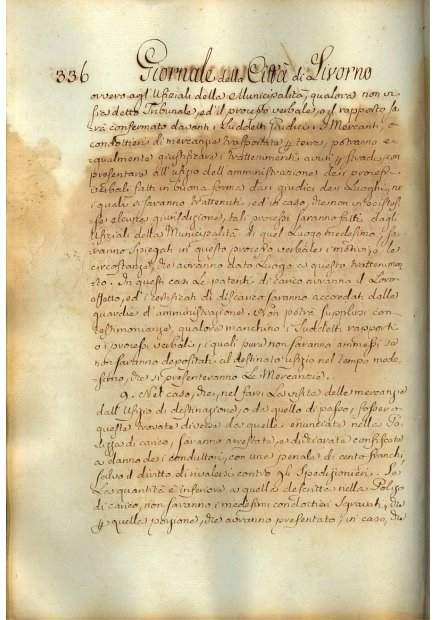 336 Giornale della Città di Livorno
ovvero agl'Ufiziali della Municipalità, qualora non vi
sia detto Tribunale, ed il processo verbale, o il rapporto sa
rà confermato davanti i suddetti giudici. I Mercanti, o
condottieri di mercanzie trasportate per terra, potranno e
gualmente giustificare i trattenimenti avuti per strada, con
presentare all'ufizio dell'amministrazione dei processi
verbali fatti in buona forma dai giudici dei Luoghi, ne
i quali si saranno trattenuti, ed in caso, che non vi esistes
se alcuna giurisdizione, tali processi saranno fatti dagli
ufiziali della Municipalità di quel Luogo medesimo, e sa
ranno spiegati in questo processo verbale i motivi, e le
circostanze, che avranno dato Luogo a questo trattenimen
to. In questi casi le patenti di carico avranno il Loro
effetto, ed i certificati di discarico saranno accordati dalle
guardie d'amministrazione. Non potrà supplirsi con
testimonianze, qualora manchino i suddetti rapporti
o i processi verbali, i quali pure non saranno ammessi, se
non saranno depositati al destinato ufizio nel tempo mede
simo, che si presenteranno Le Mercanzie.
9. Nel caso, che, nel farsi La visita delle mercanzie
dall'Ufizio di destinazione, o da quello di passo, fossero
queste trovate diverse da quelle enunciate nella Po
lizza di carico, saranno arrestate, e dichiarate confiscate
a danno dei conduttori, con una penale di cento franchi,
salvo il diritto di rivalersi contro gli Spedizionieri. Se
La quantità è inferiore a quella descritta nella Polizza
di carico, non saranno i medesimi condottieri sgravati, che
per quella porzione, che avranno presentato; in caso, che